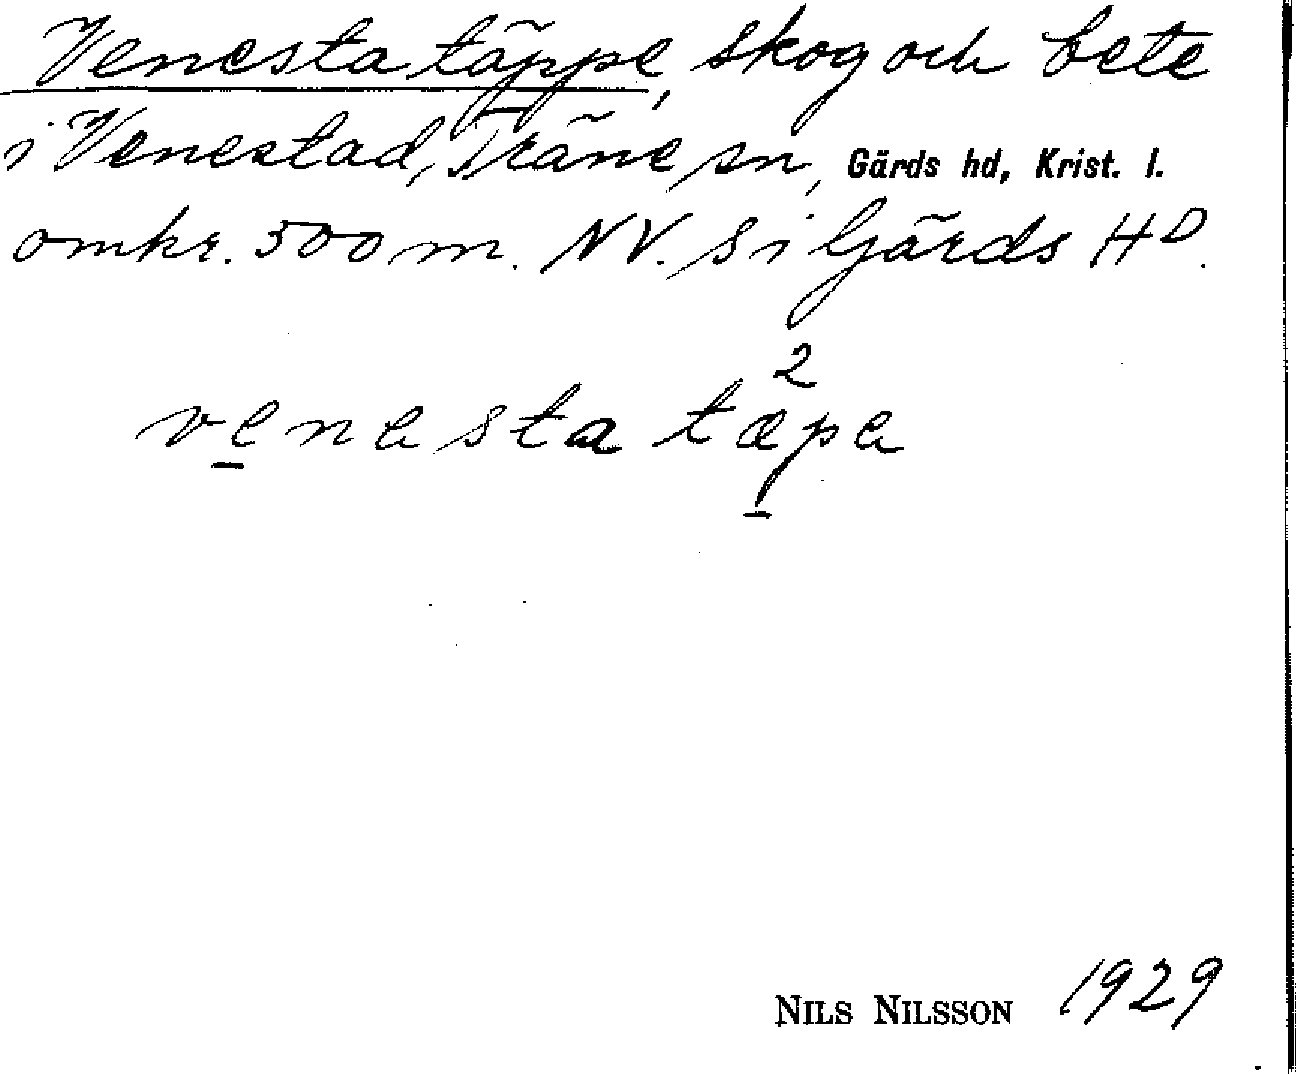 Venesta täppe, skog och bete
i Venestad, Träne sn, Gärds hd, Krist. l.
omkr. 500 m. NV. s i Gärds HD.
2
venesta tæpe
NILS NILSSON 1929